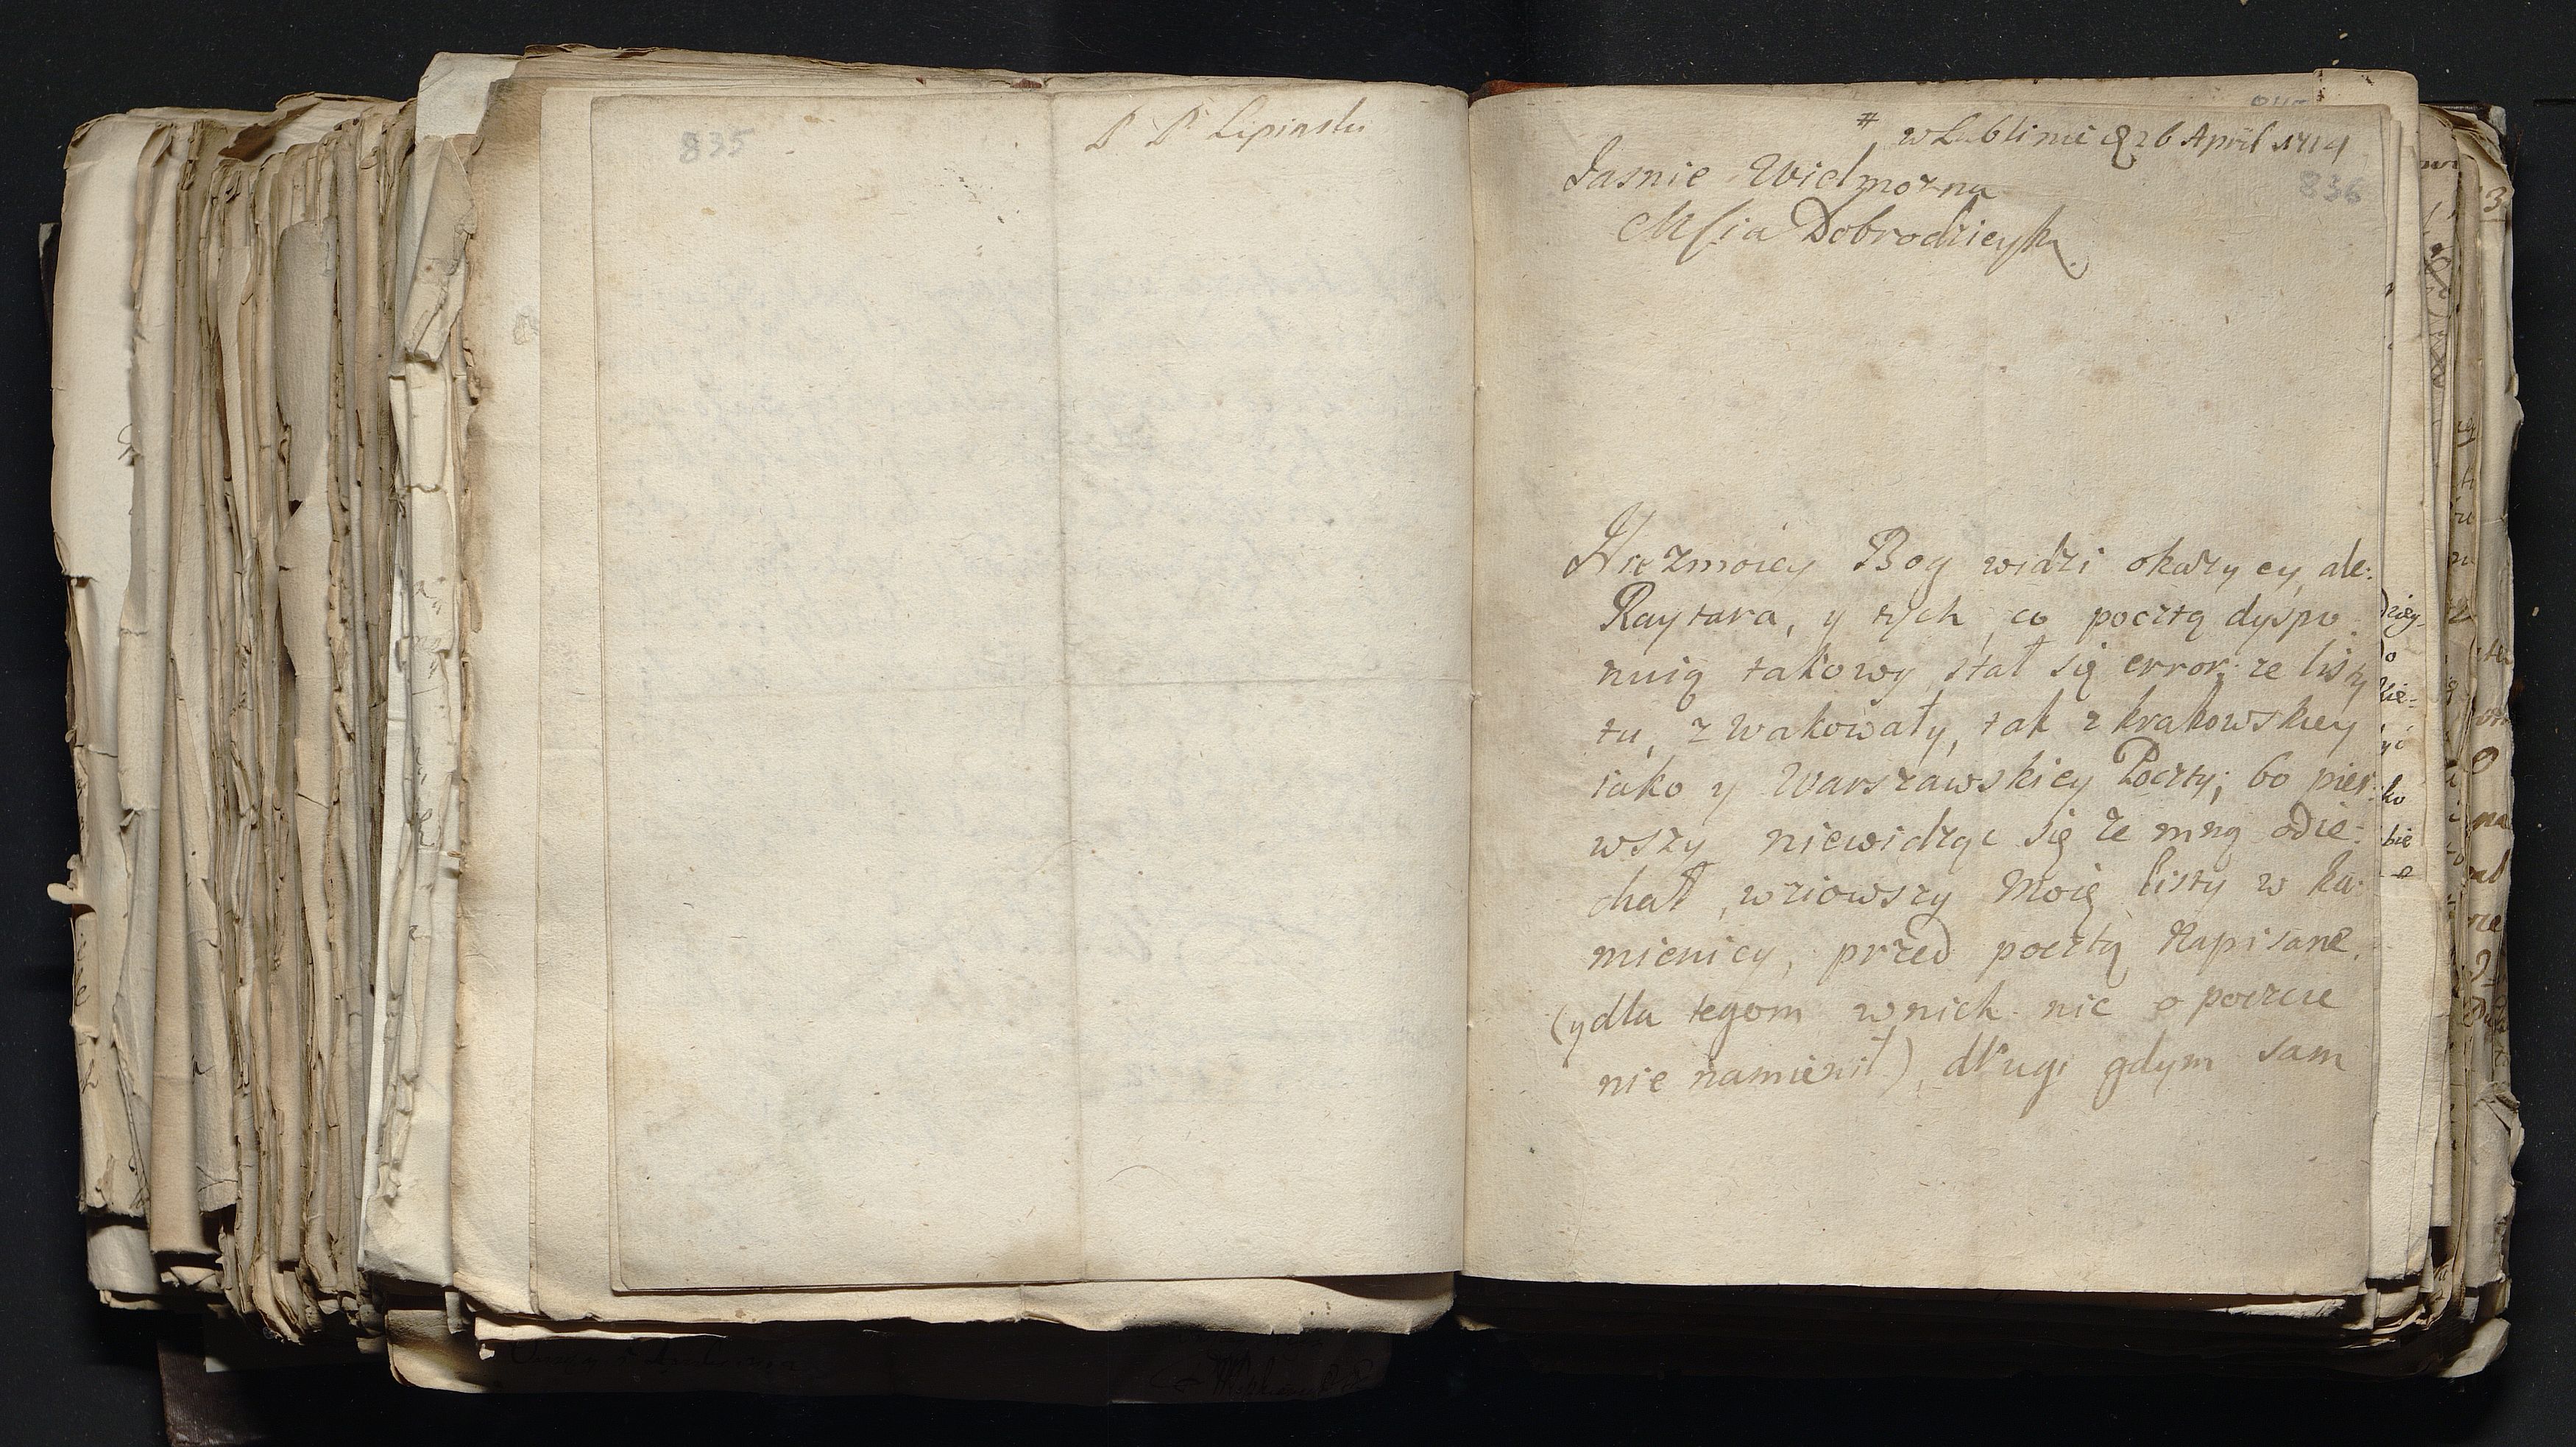 835
P P Lipinski
# w Lublinie D 26 April 1714
836
Jasnie Wielmozna
Mscia Dobrodzieyko
Nie z moiey Bog widzi okazycy, ale:
Raytara, y tych, co pocztą dyspo
nuią takowy stał się error: ze listy
tu, zwakowały, tak z krakowskiey
iako y Warszawskiey Poczty; bo pier:
wszy niewidząc się ze mną odie:
chał, wziowszy Moię listy w ka:
mienicy, przed pocztą Napisane,
(y dla tegom w nich nic o poczcie
nie namienił), drugi gdym sam